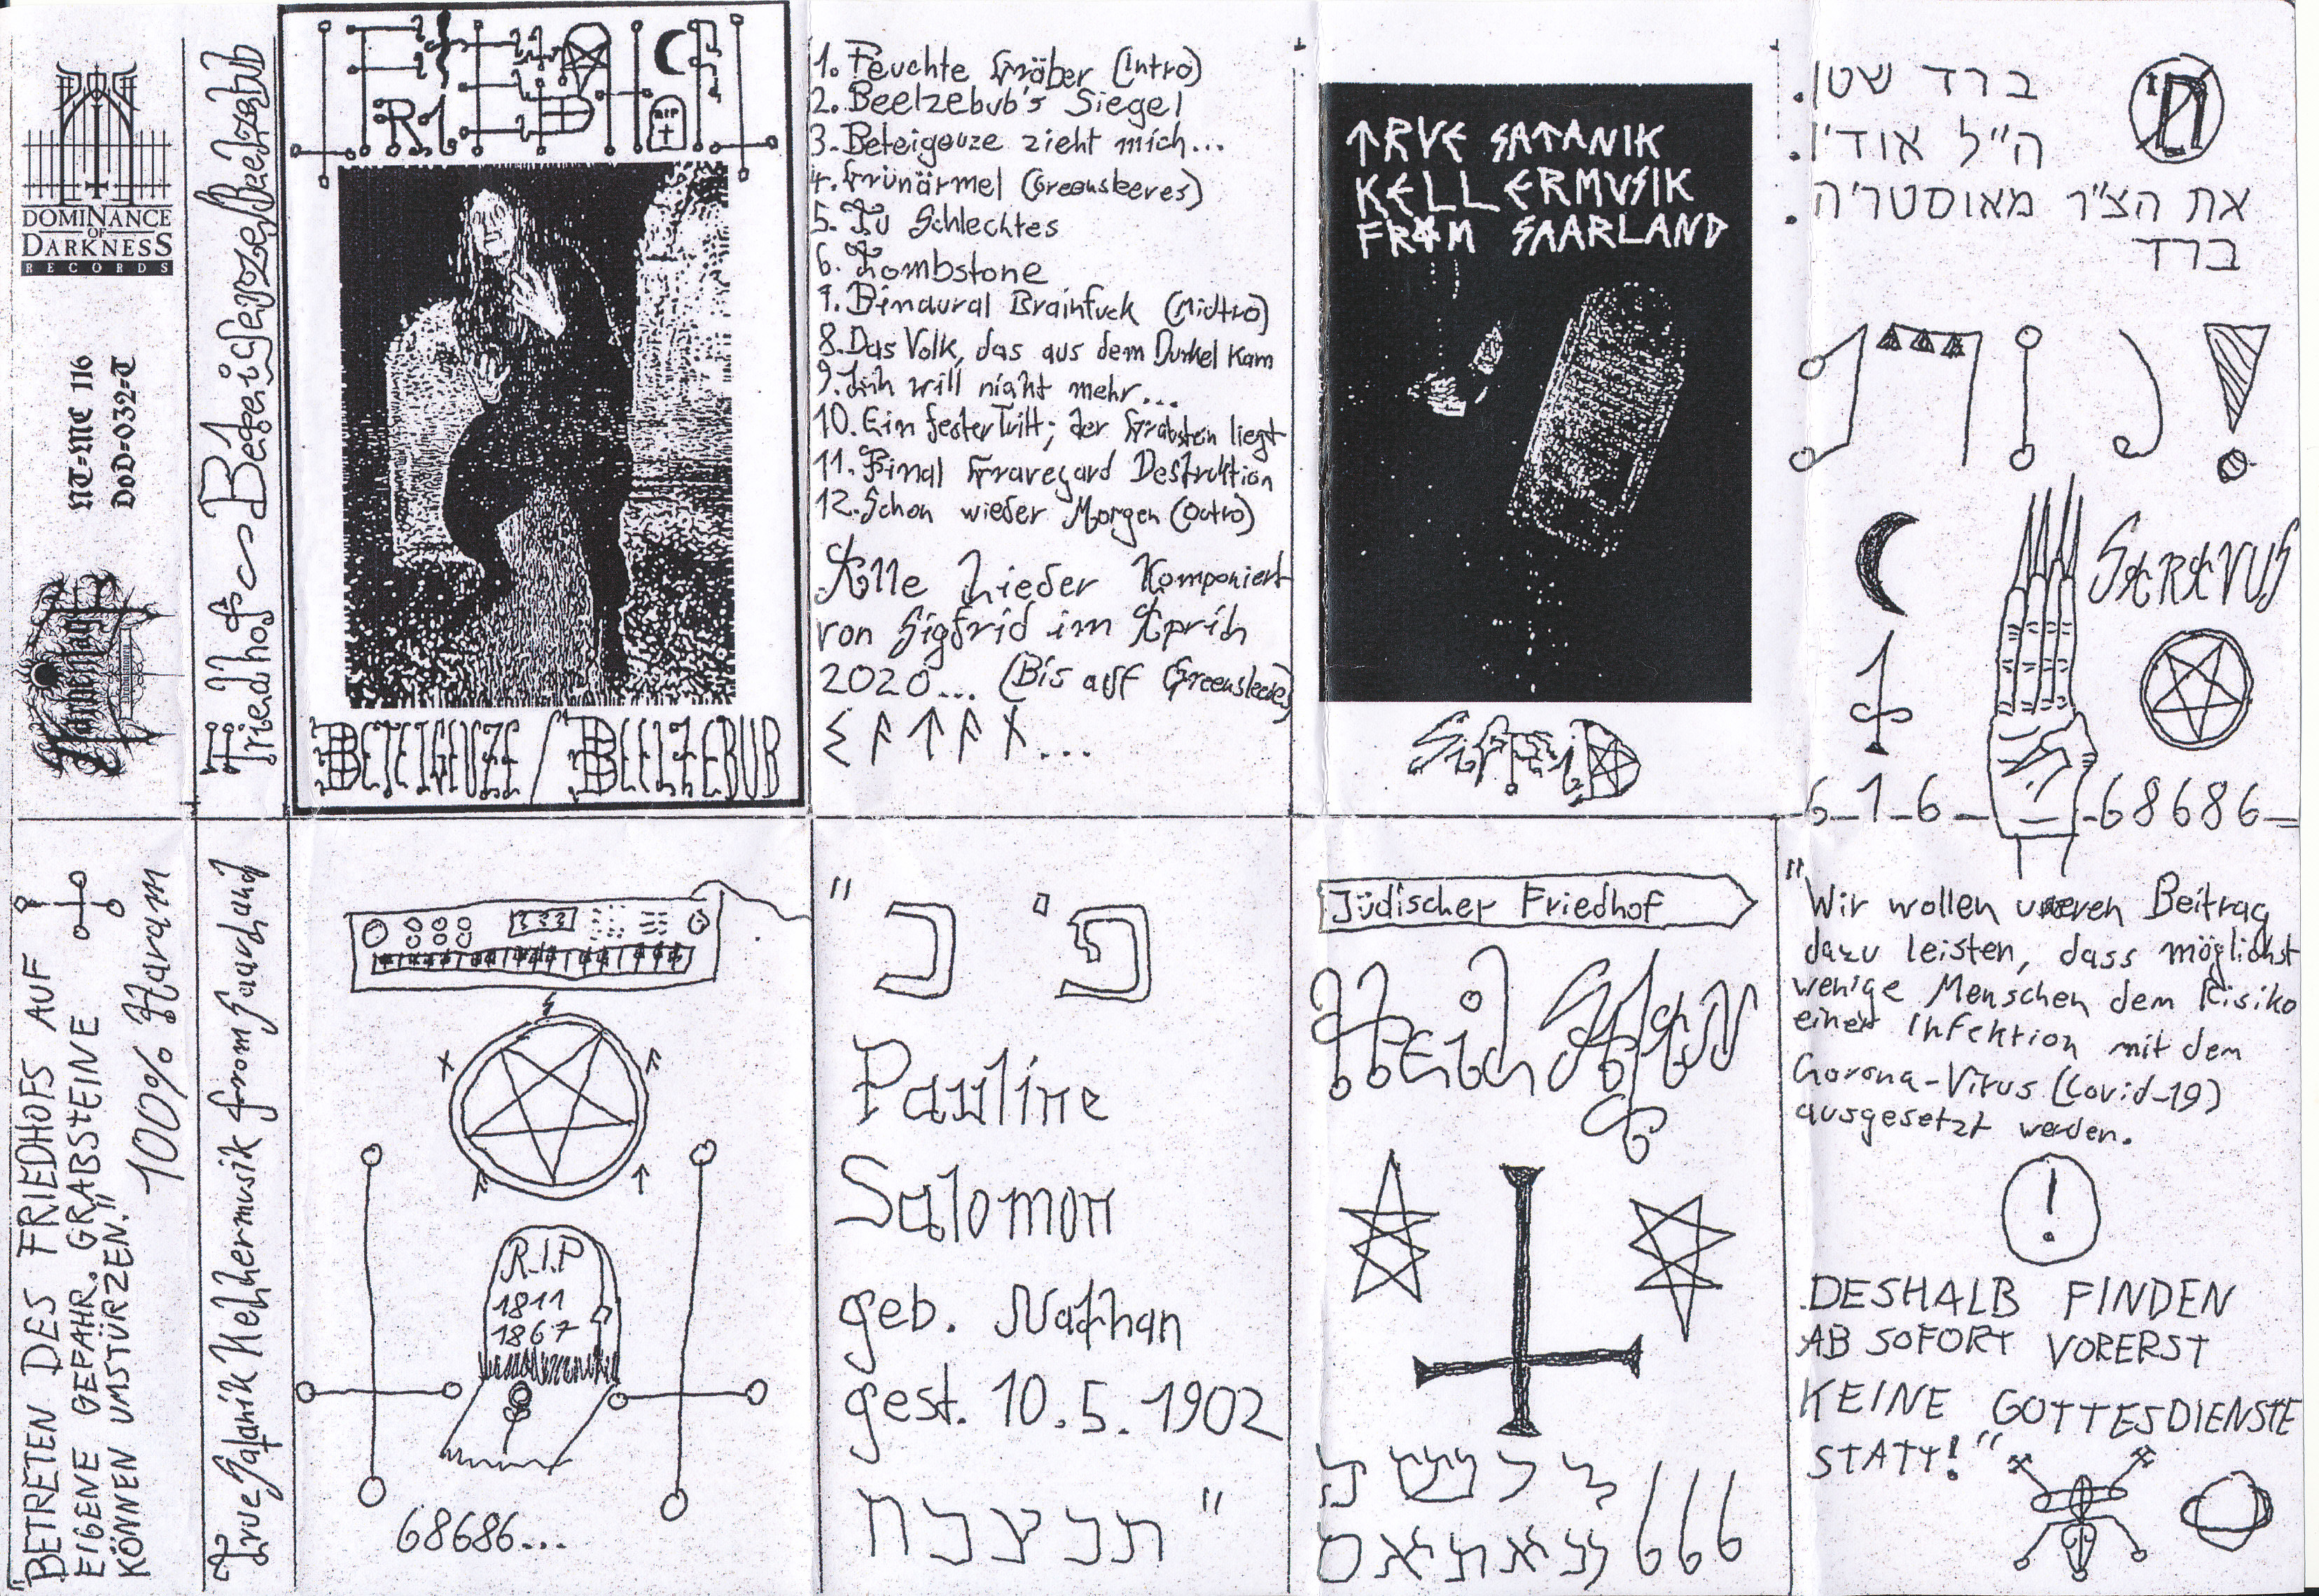 DOMINANCE
OF
DARKNESS
RECORDS
NT-MC 116
DOD-032-T
Friedhof ~ Beteigeuze/Beelzebub
FRIEDHOF
R.I.P
BETEIGEUZE/BEELZEBUB
1. Feuchte Gräber (Intro)
2. Beelzebub's Siegel
3. Beteigeuze zieht mich...
4. Grünärmel (Greensleeves)
5. Tu Schlechtes
6. Tombstone
7. Binaural Brainfuck (Midtro)
8. Das Volk, das aus dem Dunkel kam
9. Ich will nicht mehr...
10. Ein fester Tritt; der Grabstein liegt
11. Final Graveyard Destruktion
12. Schon wieder Morgen (Outro)
Alle Lieder Komponiert
von Sigfrid im April
2020... (Bis auf Greensleeves)
ᛊᚨᛏᚨᚾ...
TRVE SATANIK
KELLERMVSIK
FROM SAARLAND
ברד שטן
ה״ל אודין
את הצ״ר מאוסטר׳ה
ברד
SARAVUS
6_1_6_
_68686_
"BETRETEN DES FRIEDHOFS AUF
EIGENE GEFAHR. GRABSTEINE
KÖNNEN UMSTÜRZEN."
100% Haram
True Satanik Kellermusik from Saarland
R.I.P
1811
1867
68686...
"פ׳ נ
Pauline
Salomon
geb. Nathan
gest. 10.5.1902
תנצבה"
Jüdischer Friedhof
Heil
666
"Wir wollen unseren Beitrag
dazu leisten, dass möglichst
wenige Menschen dem Risiko
einer Infektion mit dem
Corona-Virus (Covid-19)
ausgesetzt werden.
!
DESHALB FINDEN
AB SOFORT VORERST
KEINE GOTTESDIENSTE
STATT!"